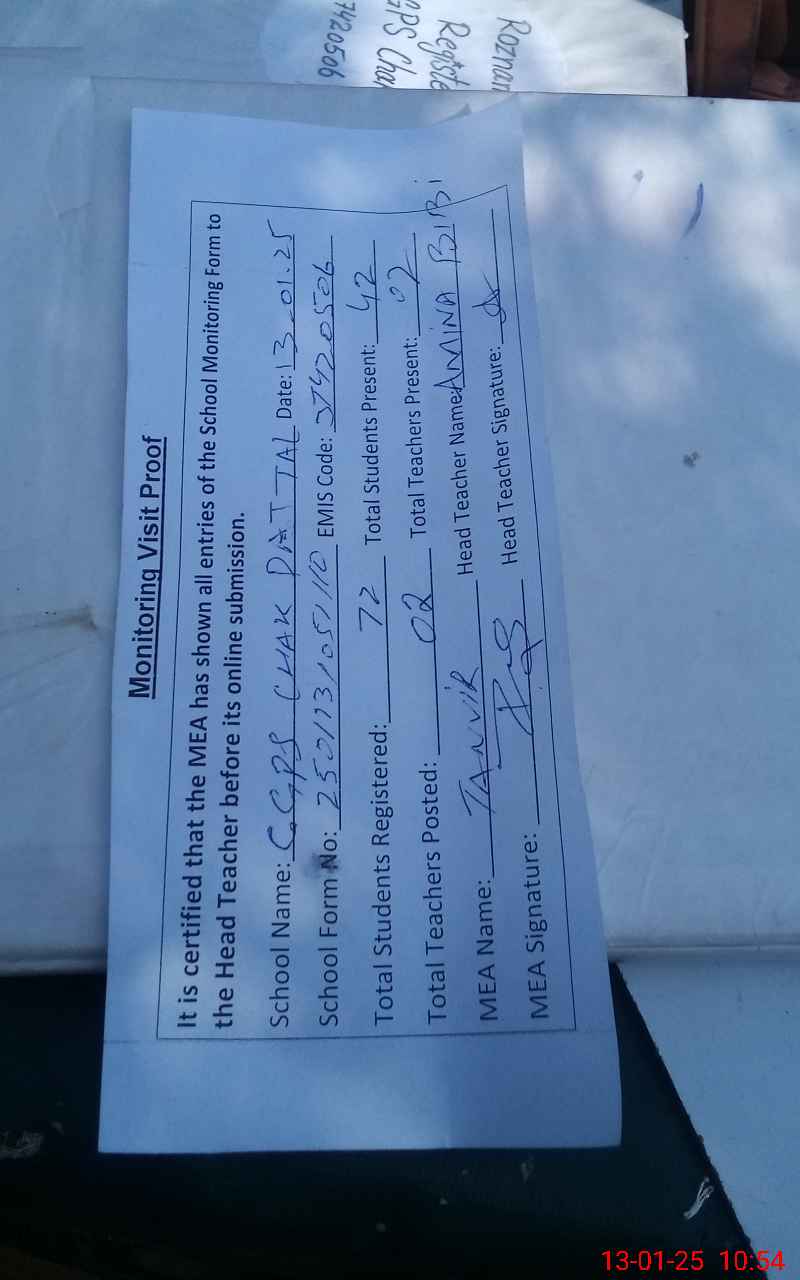 Roznam
Registe
GPS Cha
7420506
Monitoring Visit Proof
It is certified that the MEA has shown all entries of the School Monitoring Form to
the Head Teacher before its online submission.
School Name: GGPS CHAK DATTAL Date: 13-01-25
School Form No: 2501131051110 EMIS Code: 37420506
Total Students Registered: 72 Total Students Present: 42
Total Teachers Posted: 02 Total Teachers Present: 02
MEA Name: TANVIR Head Teacher Name: AMINA BIBI
MEA Signature: Head Teacher Signature:
13-01-25 10:54